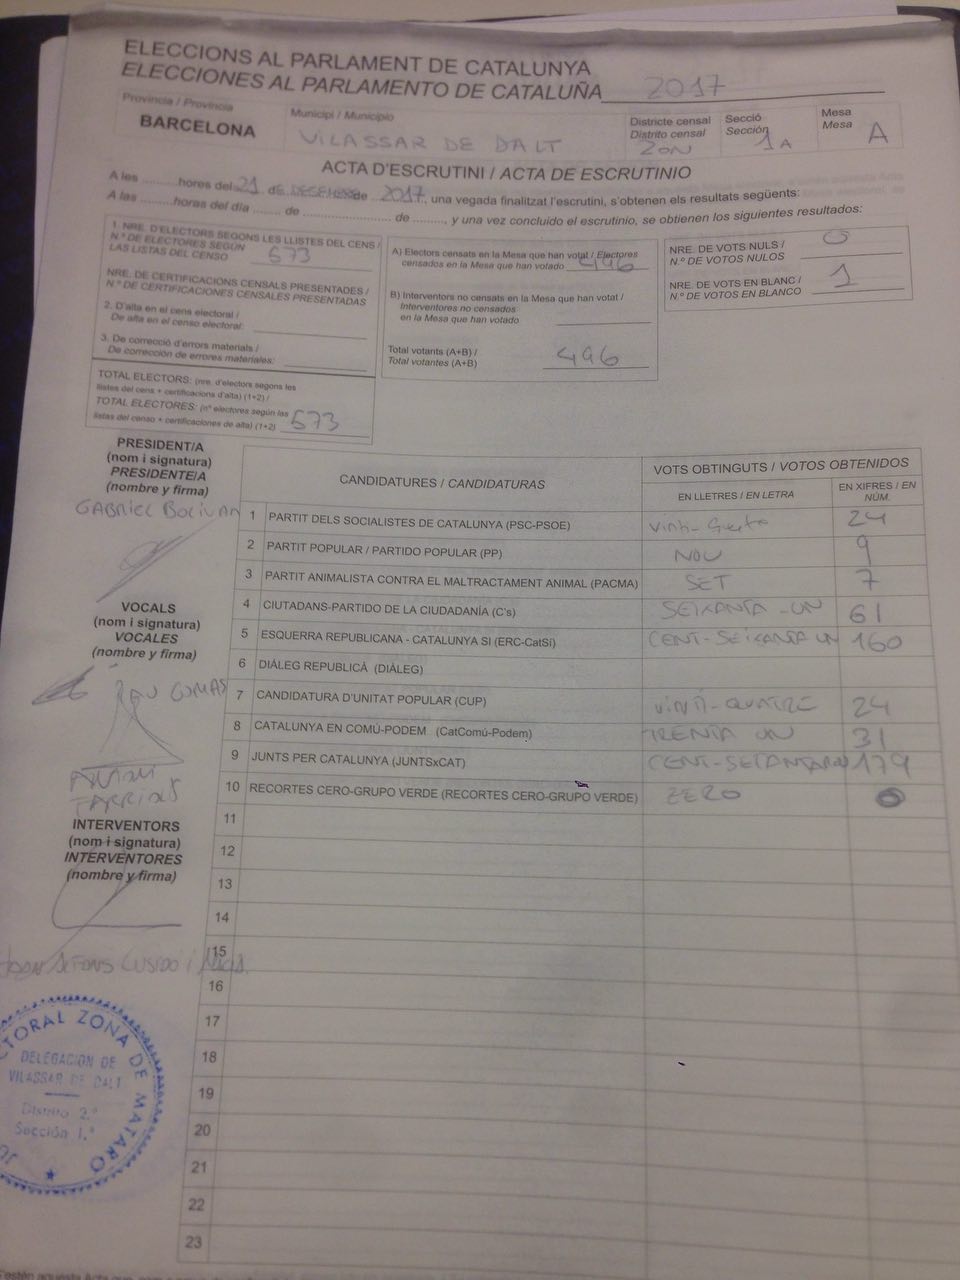 ELECCIONS AL PARLAMENT DE CATALUNYA
ELECCIONES AL PARLAMENTO DE CATALUÑA 2017
Provincia / Provincia
BARCELONA
Municipi / Municipio
VILASSAR DE DALT
Districte censal
Distrito censal
2ON
Secció
Sección
1A
Mesa
Mesa
A
ACTA D'ESCRUTINI / ACTA DE ESCRUTINIO
A les ..........hores del 21 de DESEMBRE de 2017, una vegada finalitzat l'escrutini, s'obtenen els resultats següents:
A las ..........horas del día ........ de ........................ de ........, y una vez concluido el escrutinio, se obtienen los siguientes resultados:
1. NRE. D'ELECTORS SEGONS LES LLISTES DEL CENS /
N.º DE ELECTORES SEGÚN
LAS LISTAS DEL CENSO 573
NRE. DE CERTIFICACIONS CENSALS PRESENTADES /
N.º DE CERTIFICACIONES CENSALES PRESENTADAS
2. D'alta en el cens electoral /
De alta en el censo electoral:
3. De correcció d'errors materials /
De corrección de errores materiales:
TOTAL ELECTORS: (nre. d'electors segons les
llistes del cens + certificacions d'alta) (1+2) /
TOTAL ELECTORES: (nº electores según las
listas del censo + certificaciones de alta) (1+2) 573
A) Electors censats en la Mesa que han votat / Electores
censados en la Mesa que han votado 496
B) Interventors no censats en la Mesa que han votat /
Interventores no censados
en la Mesa que han votado
Total votants (A+B) /
Total votantes (A+B) 496
NRE. DE VOTS NULS /
N.º DE VOTOS NULOS 0
NRE. DE VOTS EN BLANC /
N.º DE VOTOS EN BLANCO 1
PRESIDENT/A
(nom i signatura)
PRESIDENTE/A
(nombre y firma)
GABRIEL BOLIVAR
VOCALS
(nom i signatura)
VOCALES
(nombre y firma)
COMAS
INTERVENTORS
(nom i signatura)
INTERVENTORES
(nombre y firma)
CANDIDATURES / CANDIDATURAS
VOTS OBTINGUTS / VOTOS OBTENIDOS
EN LLETRES / EN LETRA
EN XIFRES / EN NÚM.
1 PARTIT DELS SOCIALISTES DE CATALUNYA (PSC-PSOE) 24
2 PARTIT POPULAR / PARTIDO POPULAR (PP) NOU 9
3 PARTIT ANIMALISTA CONTRA EL MALTRACTAMENT ANIMAL (PACMA) SET 7
4 CIUTADANS-PARTIDO DE LA CIUDADANÍA (C's) SEIXANTA-UN 61
5 ESQUERRA REPUBLICANA - CATALUNYA SI (ERC-CatSí) CENT-SEIXANTA UN 160
6 DIÀLEG REPUBLICÀ (DIÀLEG)
7 CANDIDATURA D'UNITAT POPULAR (CUP) VINTI-QUATRE 24
8 CATALUNYA EN COMÚ-PODEM (CatComú-Podem) TRENTA UN 31
9 JUNTS PER CATALUNYA (JUNTSxCAT) 179
10 RECORTES CERO-GRUPO VERDE (RECORTES CERO-GRUPO VERDE) ZERO 0
11
12
13
14
15
16
17
18
19
20
21
22
23
DELEGACIÓN DE
VILASSAR DE DALT
Distrito 2.º
Sección 1.ª
ZONA DE MATARÓ